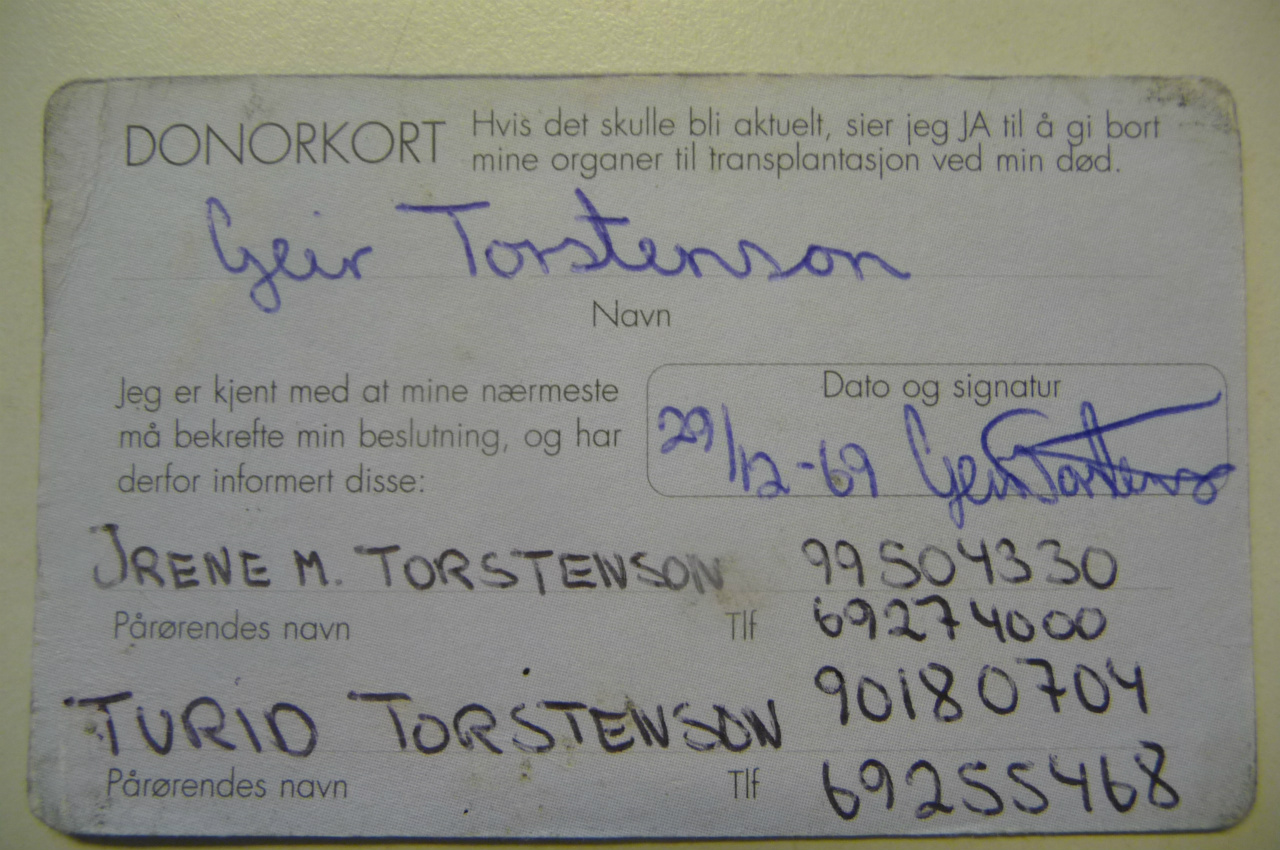 DONORKORT Hvis det skulle bli aktuelt, sier jeg JA til å gi bort
mine organer til transplantasjon ved min død.
Geir Torstenson
Navn
Jeg er kjent med at mine nærmeste
må bekrefte min beslutning, og har
derfor informert disse:
Dato og signatur
29/12-69 Geir Torstenson
IRENE M. TORSTENSON 99504330
Pårørendes navn Tlf 69274000
TURID TORSTENSON 90180704
Pårørendes navn Tlf 69255468